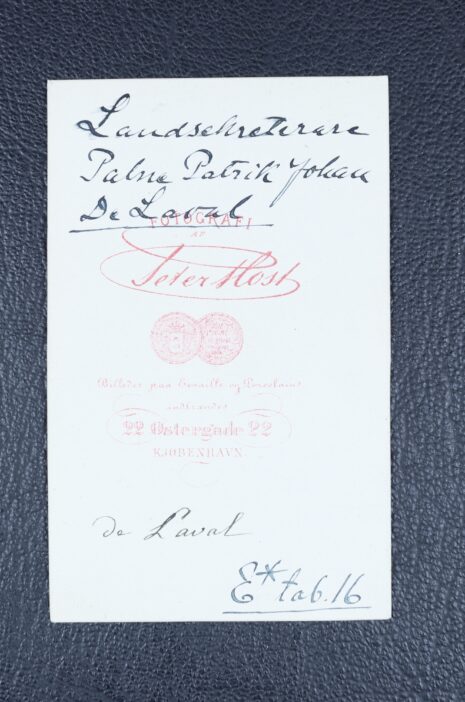 Landsekreterare
Palne Patrik Johan
De Laval
FOTOGRAFI
AF
Peter Most
Billeder paa Emaille og Porcelain
indbrændes
22 Østergade 22
KJØBENHAVN.
de Laval
E* tab. 16